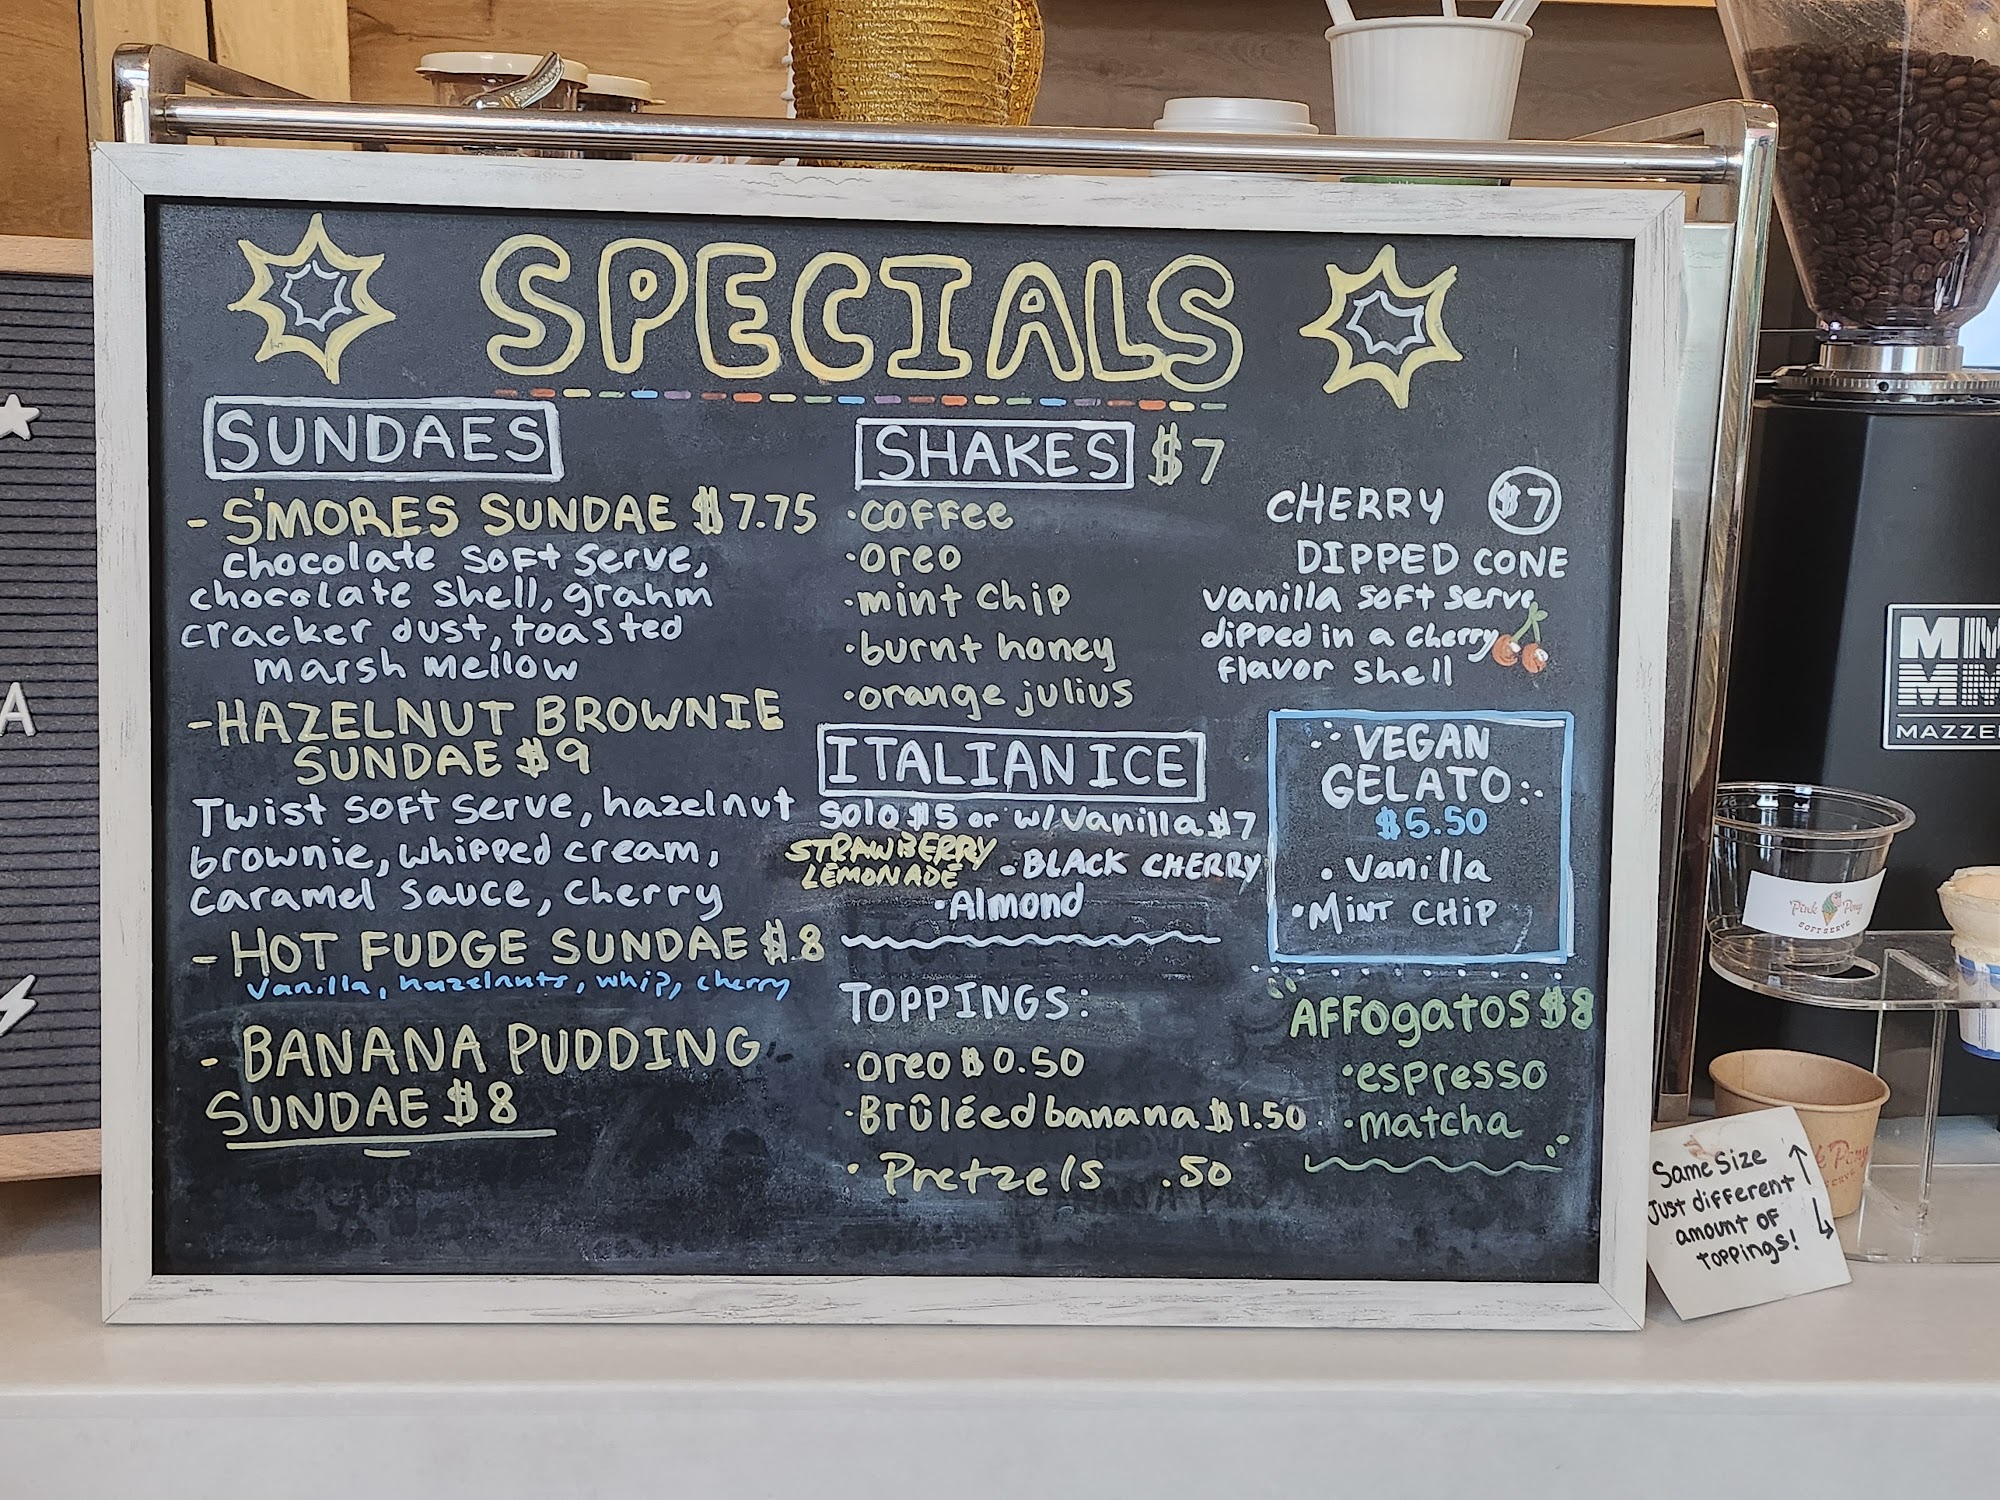 SPECIALS
SUNDAES
- S'MORES SUNDAE $7.75
chocolate soft serve,
chocolate shell, grahm
cracker dust, toasted
marsh mellow
- HAZELNUT BROWNIE
SUNDAE $9
Twist soft serve, hazelnut
brownie, whipped cream,
caramel sauce, cherry
- HOT FUDGE SUNDAE $8
vanilla, hazelnuts, whip, cherry
- BANANA PUDDING
SUNDAE $8
SHAKES $7
·coffee
·oreo
·mint chip
·burnt honey
·orange julius
ITALIAN ICE
solo $5 or w/vanilla $7
STRAWBERRY
LEMONADE
·BLACK CHERRY
·Almond
TOPPINGS:
·oreo $0.50
·Brûléed banana $1.50
· Pretzels .50
CHERRY $7
DIPPED CONE
vanilla soft serve
dipped in a cherry
flavor shell
VEGAN
GELATO
$5.50
· vanilla
·MINT CHIP
AFFOgatOS $8
·espresso
·matcha
Same Size
Just different
amount of
toppings!
Pink Pony
SOFT SERVE
A